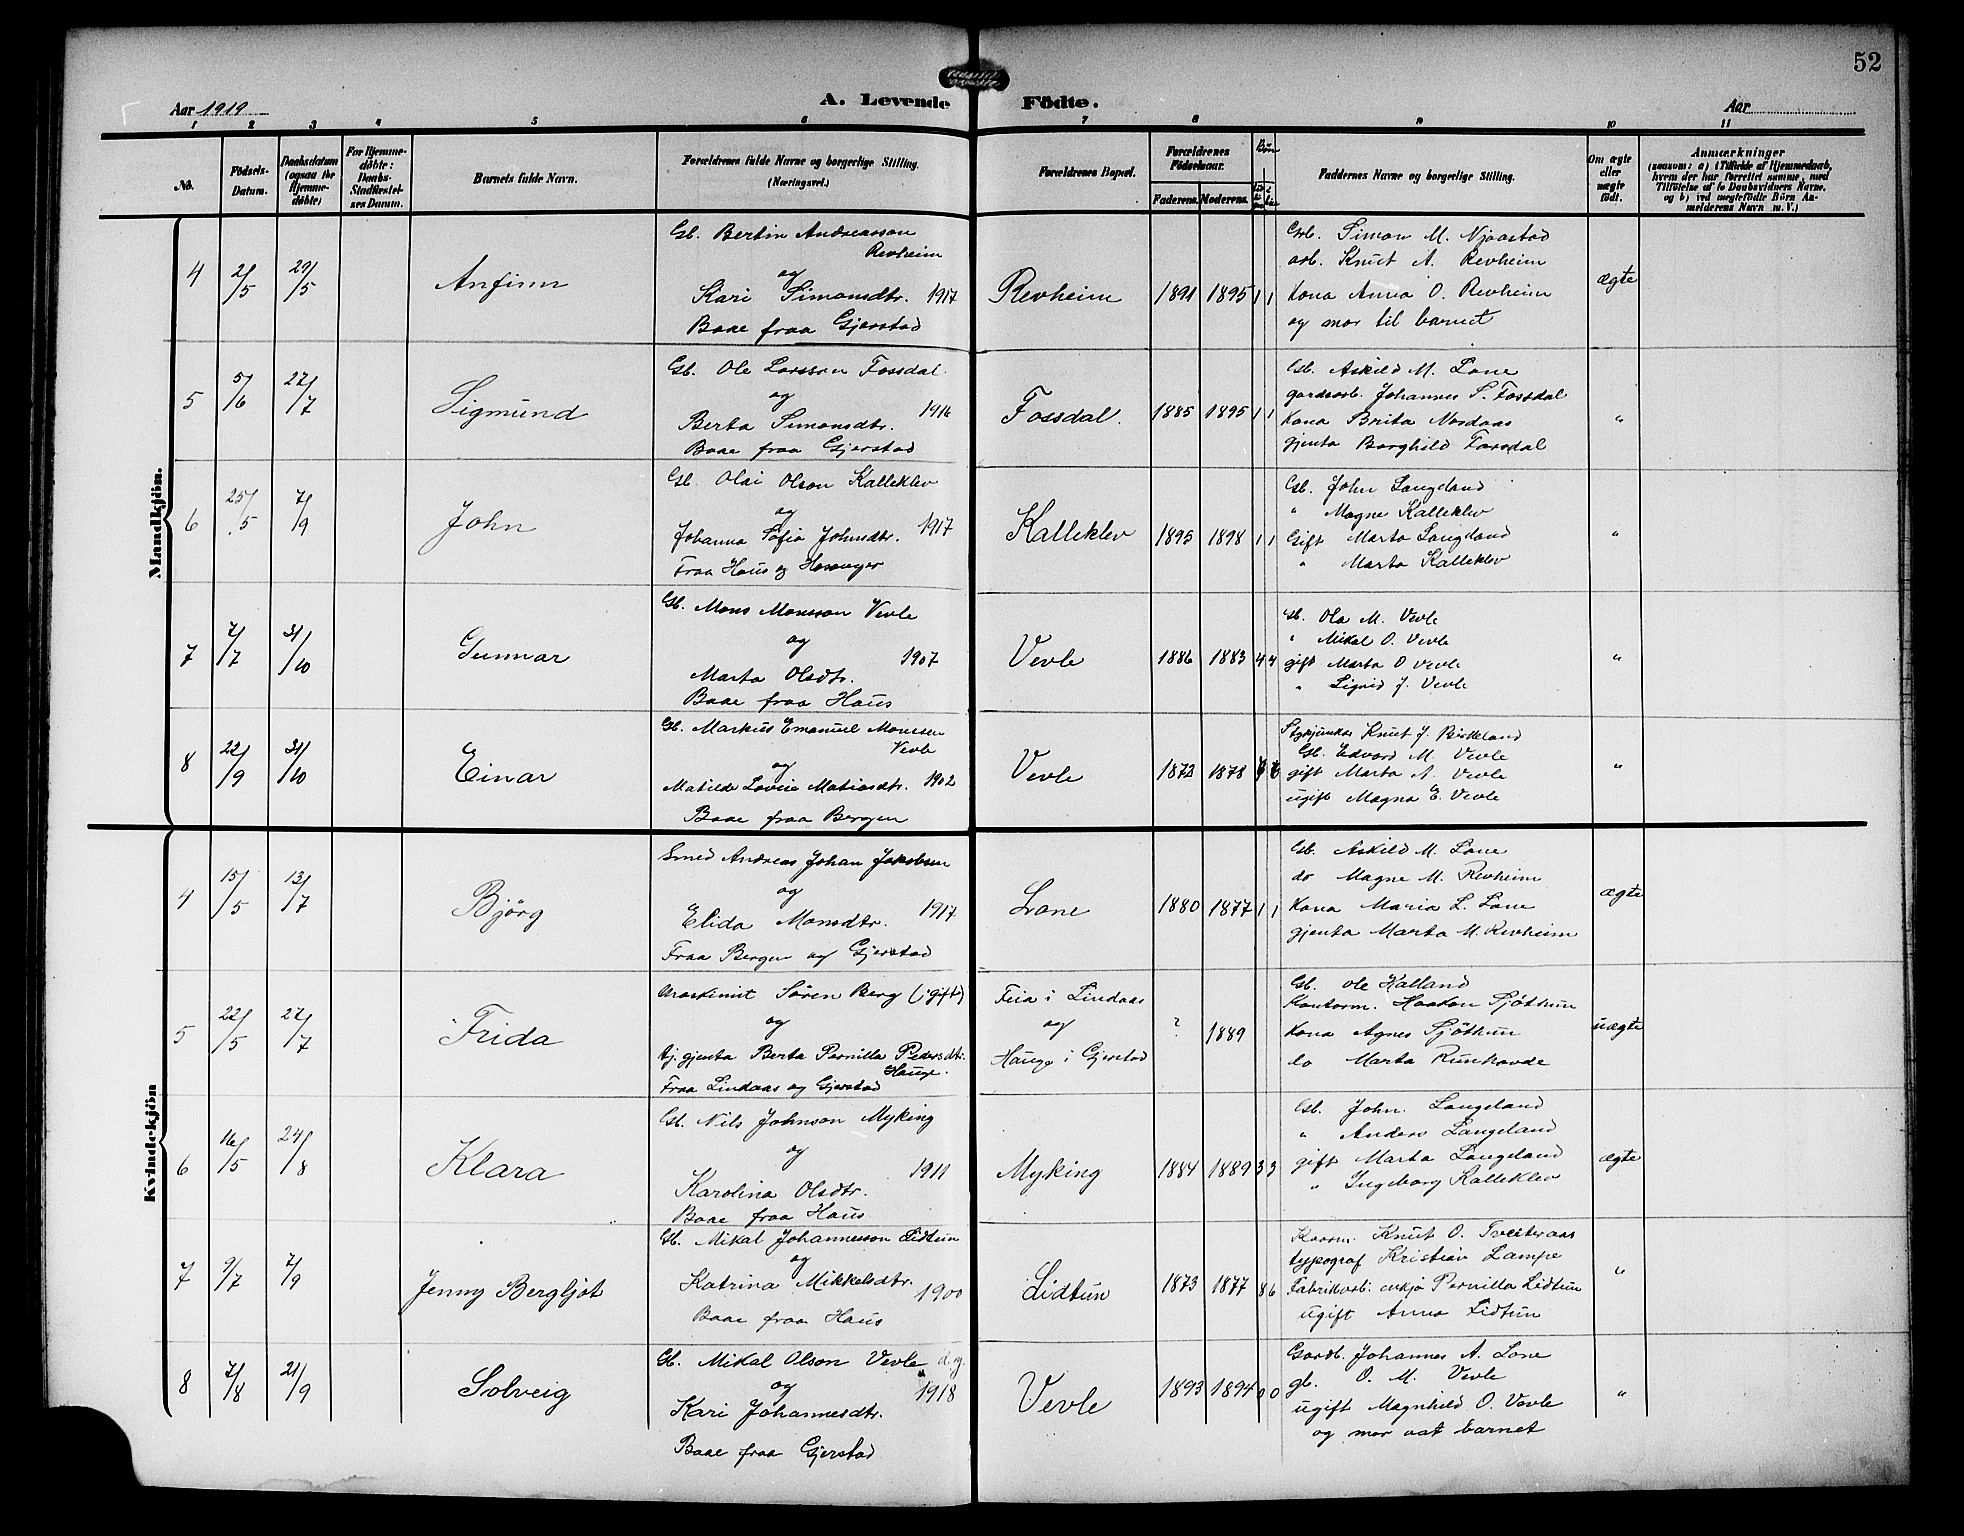 52
Aar 1919
A. Levende Födte.
Aar
1 2 3 4 5 6 7 8 9 10 11
No.
Födsels-Datum.
Daabsdatum (ogsaa for Hjemmedöbte)
For Hjemmedöbte: Daabs-Stadfæstelses Datum.
Barnets fulde Navn.
Forældrenes fulde Navne og borgerlige Stilling. (Næringsvei.)
Forældrenes Bopæl.
Forældrenes Födselsaar.
Faderens. Moderens.
Börn
Faddernes Navne og borgerlige Stilling.
Om ægte eller uægte födt.
Anmærkninger
(saasom: a) i Tilfælde af Hjemmedaab, hvem der har forrettet samme, med Tilföielse af to Daabsvidners Navne, og b) ved uægtefödte Börn Anmelderens Navn m. V.)
Mandkjön.
4 2/5 29/5 Anfinn
Gb. Bertin Andreasson
Revheim
og
Kari Simonsdtr. 1917
Baae fraa Gjerstad
Revheim 1891 1895 1 1
Gb. Simon M. Njaastad
arb. Knut A. Revheim
Kona Anna O. Revheim
og mor til barnet
ægte
5 5/6 27/7 Sigmund
Gb. Ole Larsson Fossdal
og
Berta Simonsdtr. 1916
Baae fraa Gjerstad
Fossdal. 1885 1895 1 1
Gb. Askild M. Lone
gardsarb. Johannes S. Fossdal
Kona Brita Nordaas
gjenta Borghild Fossdal
"
6 25/5 7/9 John
Gb. Olai Olson Kalleklev
og
Johanna Sofia Johnsdtr. 1917
Fraa Haus og Hosanger
Kalleklev 1895 1898 1 1
Gb. John Langeland
" Magne Kalleklev
Gift Marta Langeland
" Marta Kalleklev
"
7 7/7 31/10 Gunnar
Gb. Mons Monsson Vevle
og
Marta Olsdtr. 1907
Baae fraa Haus
Vevle 1886 1883 4 4
Gb. Ola M. Vevle
" Mikal O. Vevle
gift Marta O Vevle
" Sigrid J. Vevle
"
8 22/9 31/10 Einar
Gb. Markus Emanuel Monssen
Vevle
og
Matilde Lovise Matiasdtr. 1902
Baae fraa Bergen
Vevle 1873 1878
Knut J. Birkeland
Gb. Edvard M. Vevle
gift Marta A. Vevle
ugift Magna E. Vevle
"
Kvindekjön
4 15/5 13/7 Björg
Smed Andreas Johan Jakobsen
og
Elida Monsdtr. 1917
Fraa Bergen og Gjerstad
Lone 1880 1877 1 1
Gb. Askild M. Lone
do Magne M. Revheim
Kona Maria L. Lone
gjenta Marta M. Revheim
ægte
5 22/5 27/7 Frida
Maskinist Sören Berg (gift)
og
tj. gjenta Berta Pernilla Pedersdtr.
Hauge.
Fraa Lindaas og Gjerstad
Feia i Lindaas
og
Hauge i Gjerstad
? 1889
Gb. Ole Kalland
Kontorm. Haakon Sjöthun
Kona Agnes Sjöthun
do Marta Runhovde
uægte
6 16/5 24/8 Klara
Gb. Nils Johnson Myking
og
Karolina Olsdtr. 1911
Baae fraa Haus
Myking 1884 1889 3 3
Gb. John. Langeland
" Anders Langeland
gift Marta Langeland
" Ingeborg Kalleklev
ægte
7 9/7 7/9 Jenny Bergljot
Gb. Mikal Johannesson Lidtun
og
Katrina Mikkelsdtr. 1900
Baae fraa Haus
Lidtun 1873 1877 8 6
Knut O. Tveiteraas
typograf Kristian Lampe
Fabrikarb. enkja Pernilla Lidtun
ugift Anna Lidtun
"
8 7/8 21/9 Solveig
Gb. Mikal Olson Vevle d.y.
og
Kari Johannesdtr. 1918
Baae fraa Gjerstad
Vevle 1893 1894 0 0
Gardb. Johannes A. Lone
gb. O. M. Vevle
ugift Magnhild O. Vevle
og mor aat barnet
"